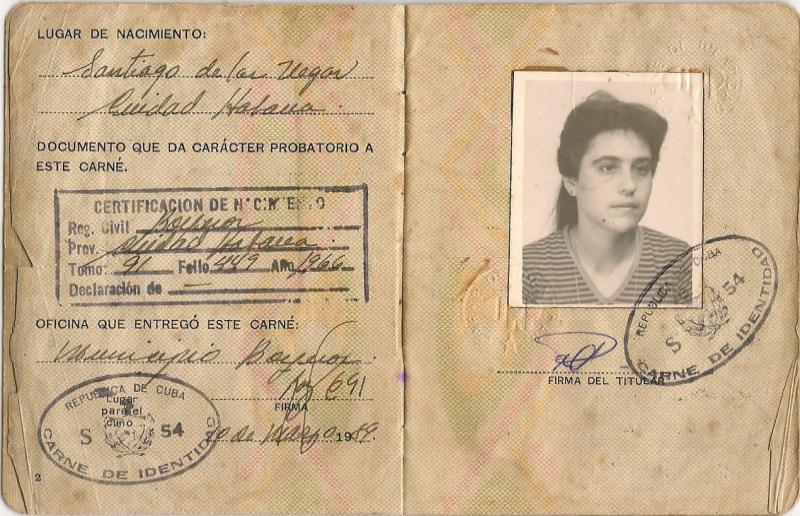 LUGAR DE NACIMIENTO:
Santiago de las Vegas
Ciudad Habana.
DOCUMENTO QUE DA CARÁCTER PROBATORIO A
ESTE CARNÉ.
CERTIFICACION DE N CIM EN O
Reg. Civil Boyeros
Prov. Ciudad Habana.
Tomo: 91 Folio 449 Año 1966
Declaración de —
OFICINA QUE ENTREGÓ ESTE CARNÉ:
Municipio Boyeros.
691
FIRMA
REPUBLICA DE CUBA
Lugar
para el
cuno
S 54
CARNE DE IDENTIDAD
20 de Marzo 1989.
2
REPUBLICA CUBA
S 54
CARNE DE IDENTIDAD
FIRMA DEL TITULAR